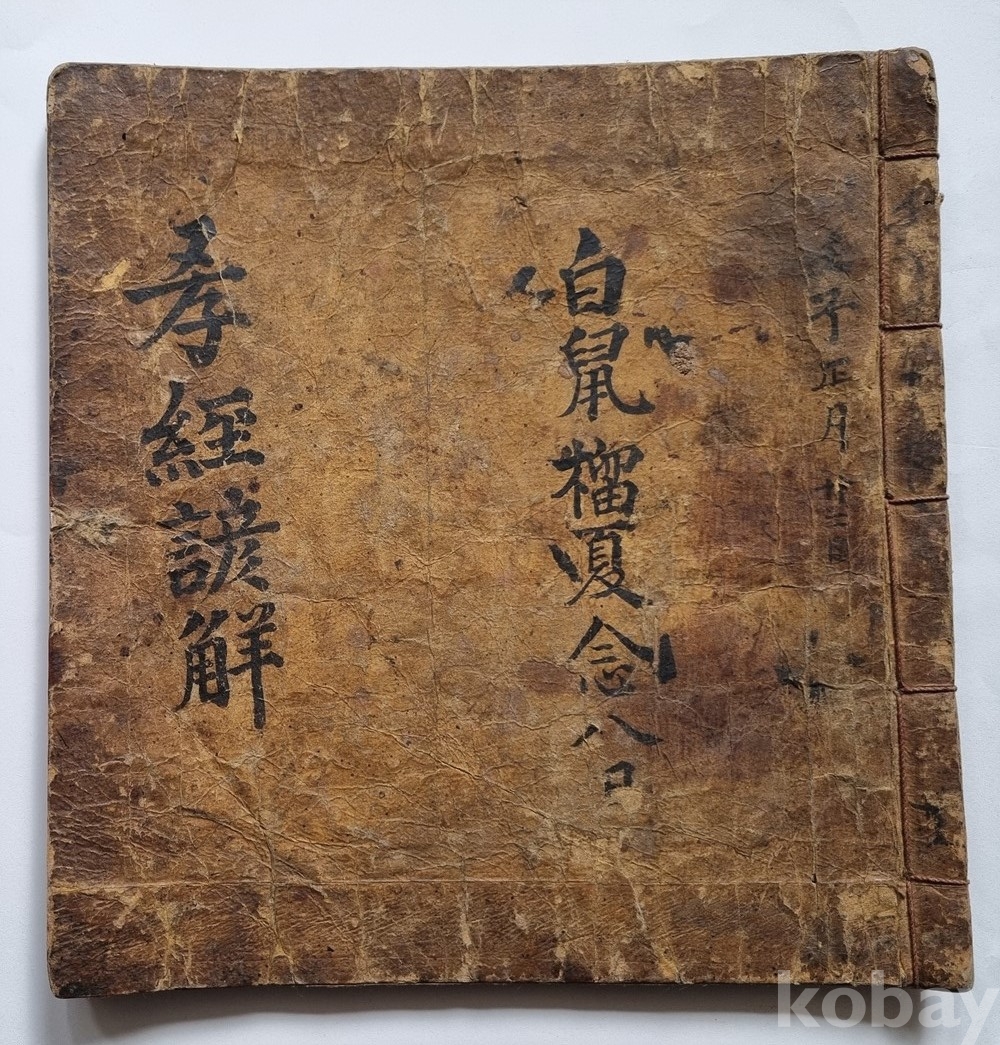 子正月廿二日
白鼠榴夏念八日
孝經諺解
kobay